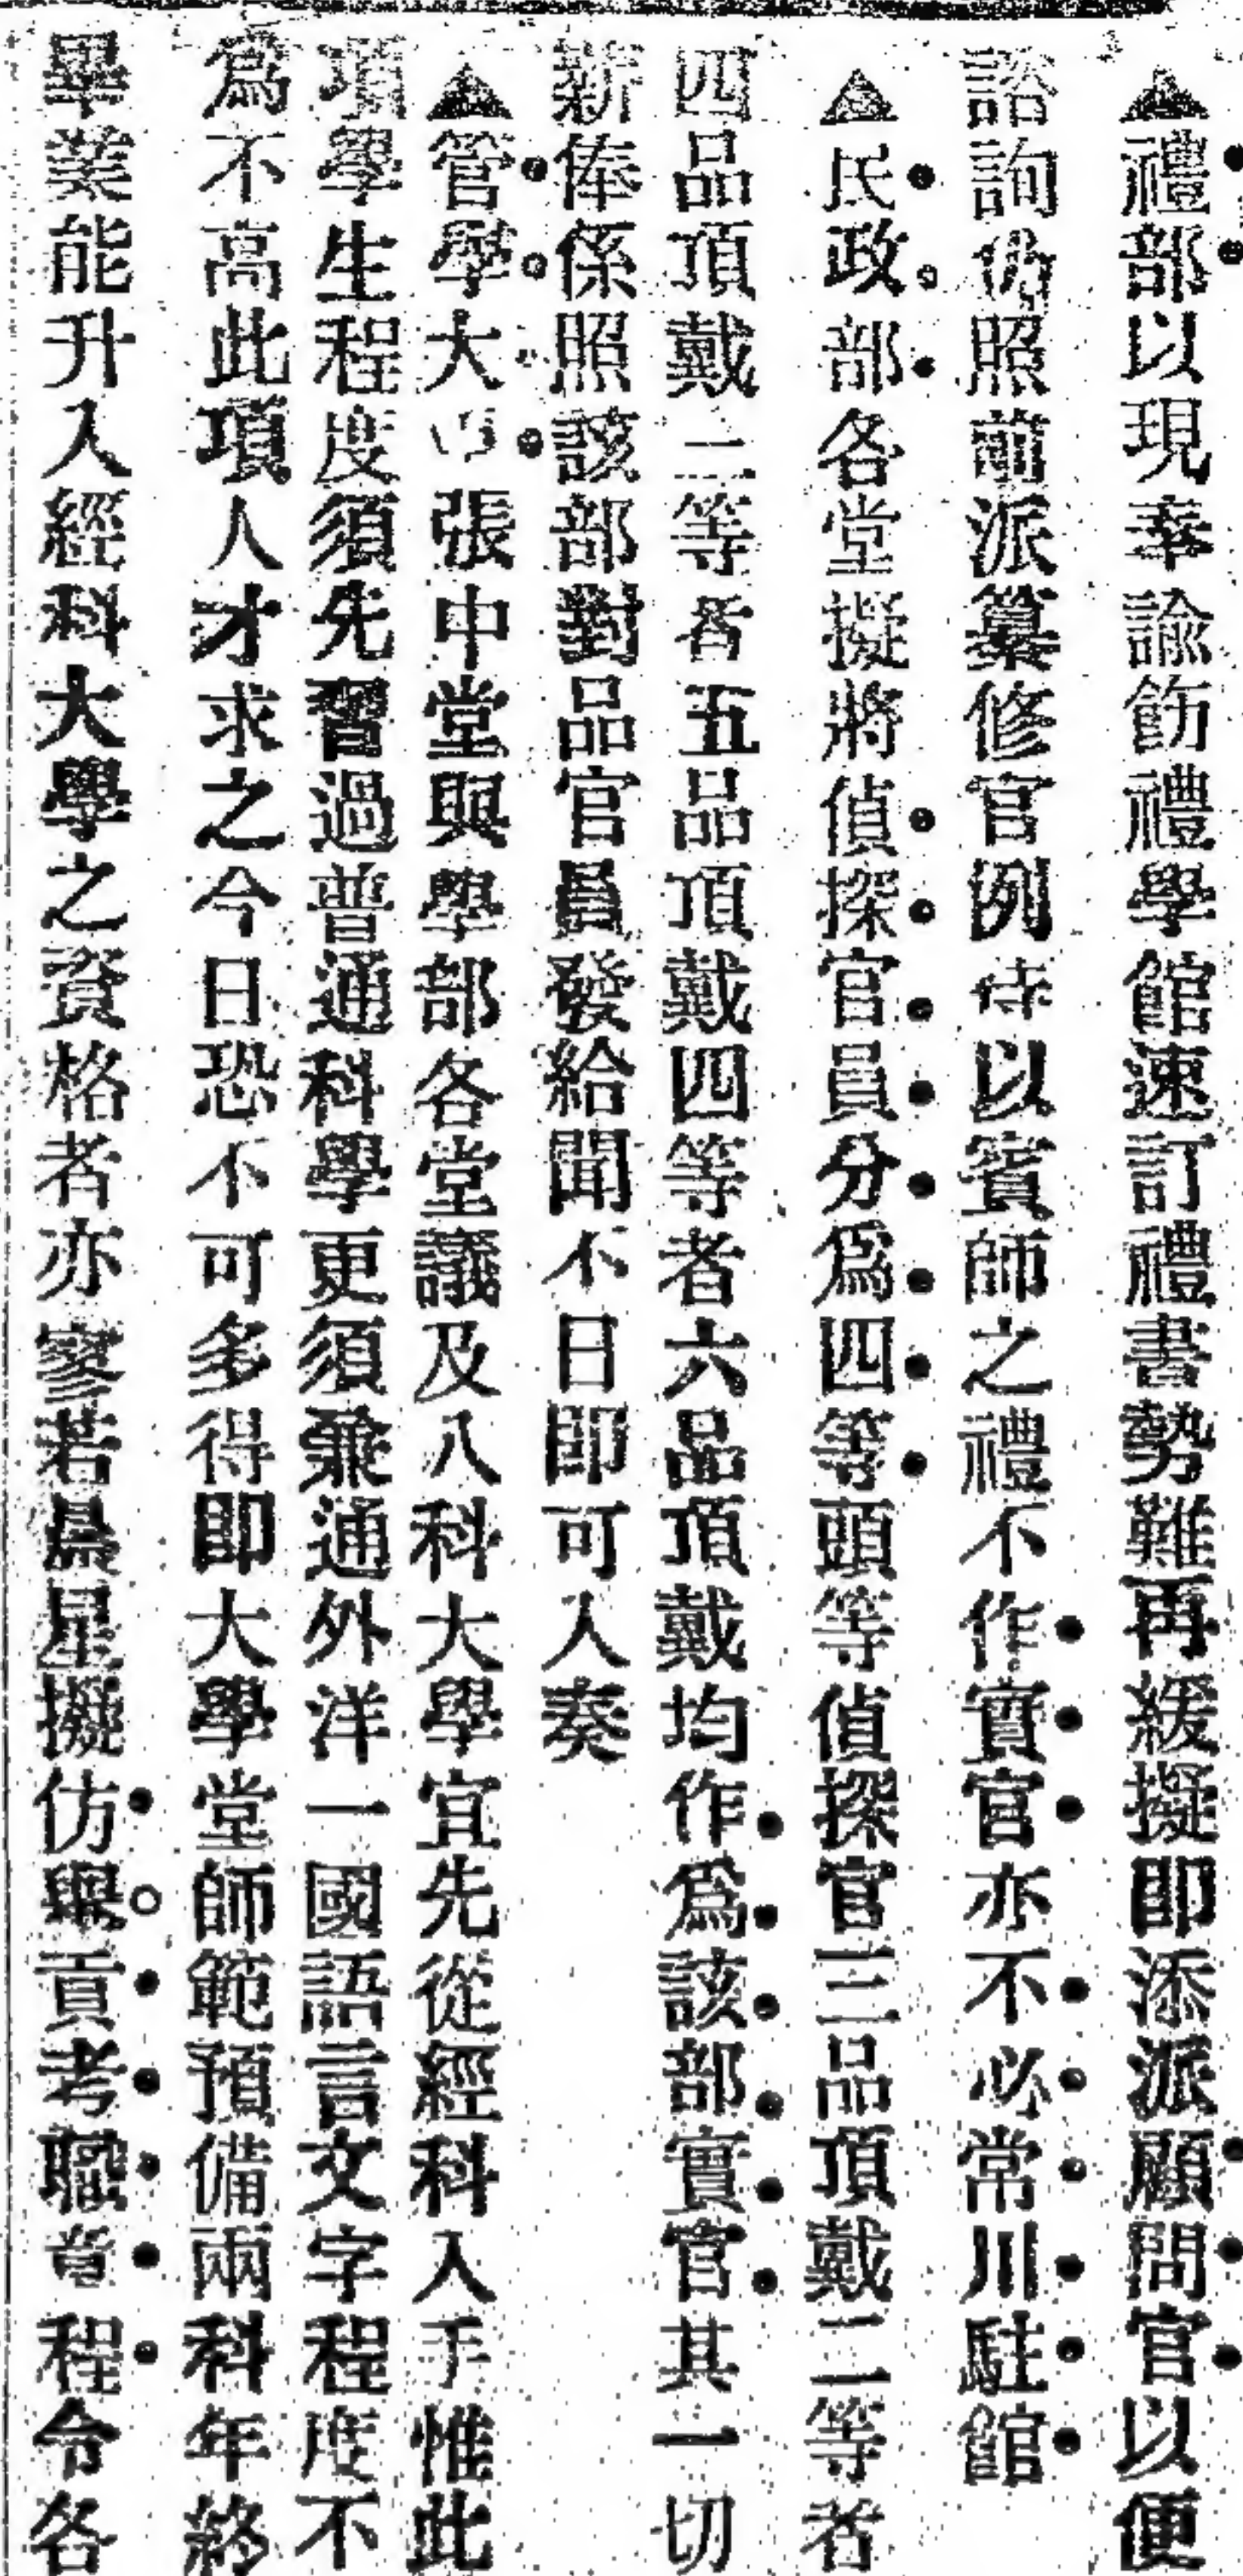 ▲禮部以現奉諭飭禮學館速訂禮書勢難再緩擬即添派顧問官以便
諮詢仍照前派纂修官例待以賓師之禮不作實官亦不必常川駐館
▲民政部各堂擬將偵探官員分爲四等頭等偵探官三品頂戴二等者
四品頂戴三等者五品頂戴四等者六品頂戴均作爲該部實官其一切
薪俸係照該部對品官員發給聞不日即可入奏
▲管學大張中堂與學部各堂議及八科大學宜先從經科入手惟此
項學生程度須先習過普通科學更須兼通外洋一國語言文字程度不
爲不高此項人才求之今日恐不可多得即大學堂師範預備兩科年終
畢業能升入經科大學之資格者亦寥若晨星擬仿舉貢考職章程令各